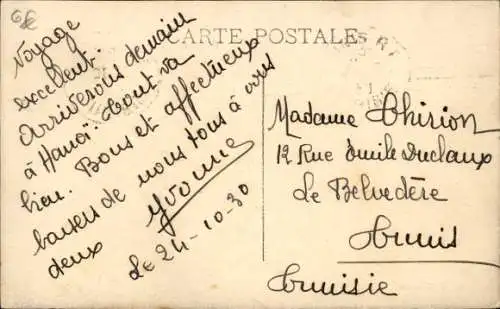 6€
CARTE POSTALE
Voyage
excellent.
Arriverons demain
à Hanoï. Tout va
bien. Bons et affectueux
baisers de nous tous à vous
deux
Yvonne
Le 24-10-30
Madame Thirion
12 Rue Emile Duclaux
Le Belvedère
Tunis
Tunisie